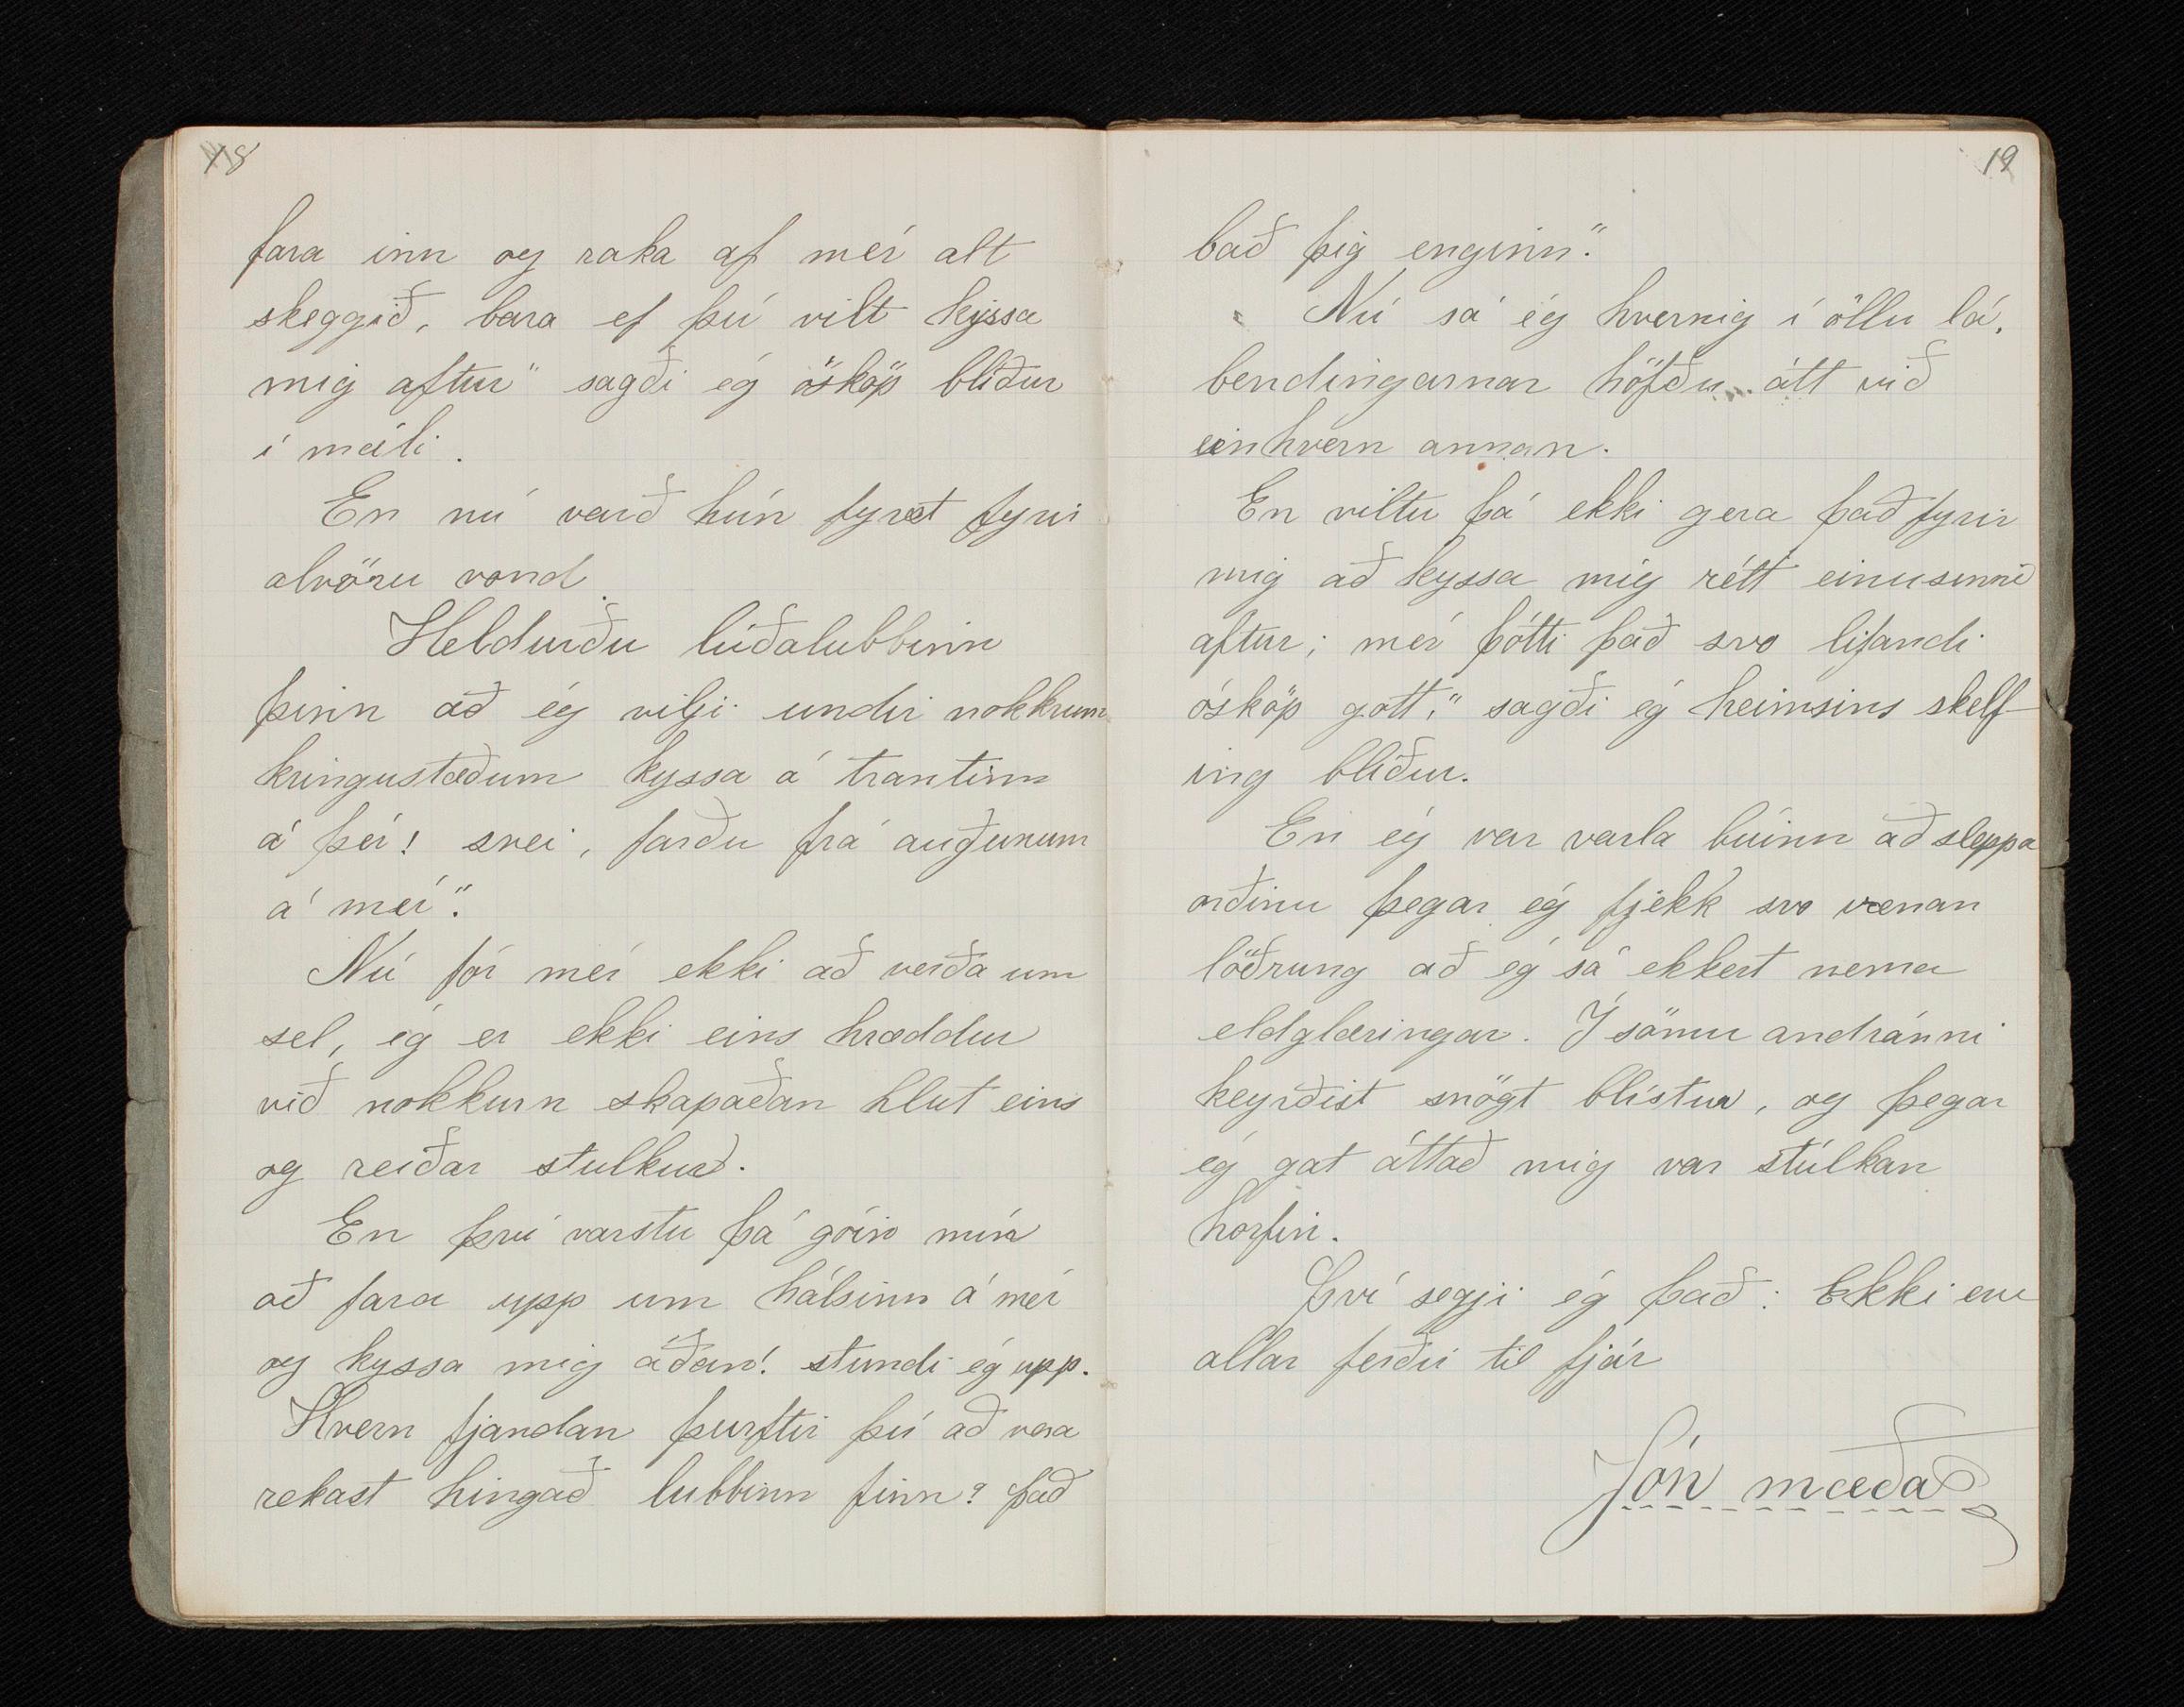 18
fara inn og raka af mér alt
skeggið, bara ef þú vilt kyssa
mig aftur" sagði ég ósköp blíður
í máli.
En nú varð hún fyrst fyrir
alvöru vond.
Heldurðu lúðalubbinn
þinn að ég vilji undir nokkrum
kringustæðum kyssa á trantinn
á þér! svei, farðu frá augunum
á mér".
Nú fór mér ekki að verða um
sel, ég er ekki eins hræddur
við nokkurn skapaðan hlut eins
og reiðar stulkur.
En því varstu þá góin mín
að fara upp um hálsinn á mér
og kyssa mig áðan! stundi ég upp.
Hvern fjandan þurftir þú að vera
rekast hingað lubbinn þinn? það
19
bað þig enginn".
Nú sá ég hvernig í öllu lá,
bendingarnar höfðu átt við
einhvern annan.
En viltu þá ekki gera það fyrir
mig að kyssa mig rétt einusinni
aftur; mér þótti það svo lifandi
ósköp gott," sagði ég heimsins skelf-
ing blíður.
En ég var varla búinn að sleppa
orðinu þegar ég fjekk svo vænan
löðrung að ég sá ekkert nema
eldglæringar. Í sömu andránni
heyrðist snögt blístur, og þegar
ég gat áttað mig var stúlkan
horfin.
Því segji ég það: Ekki eru
allar ferðir til fjár
Jón mæða